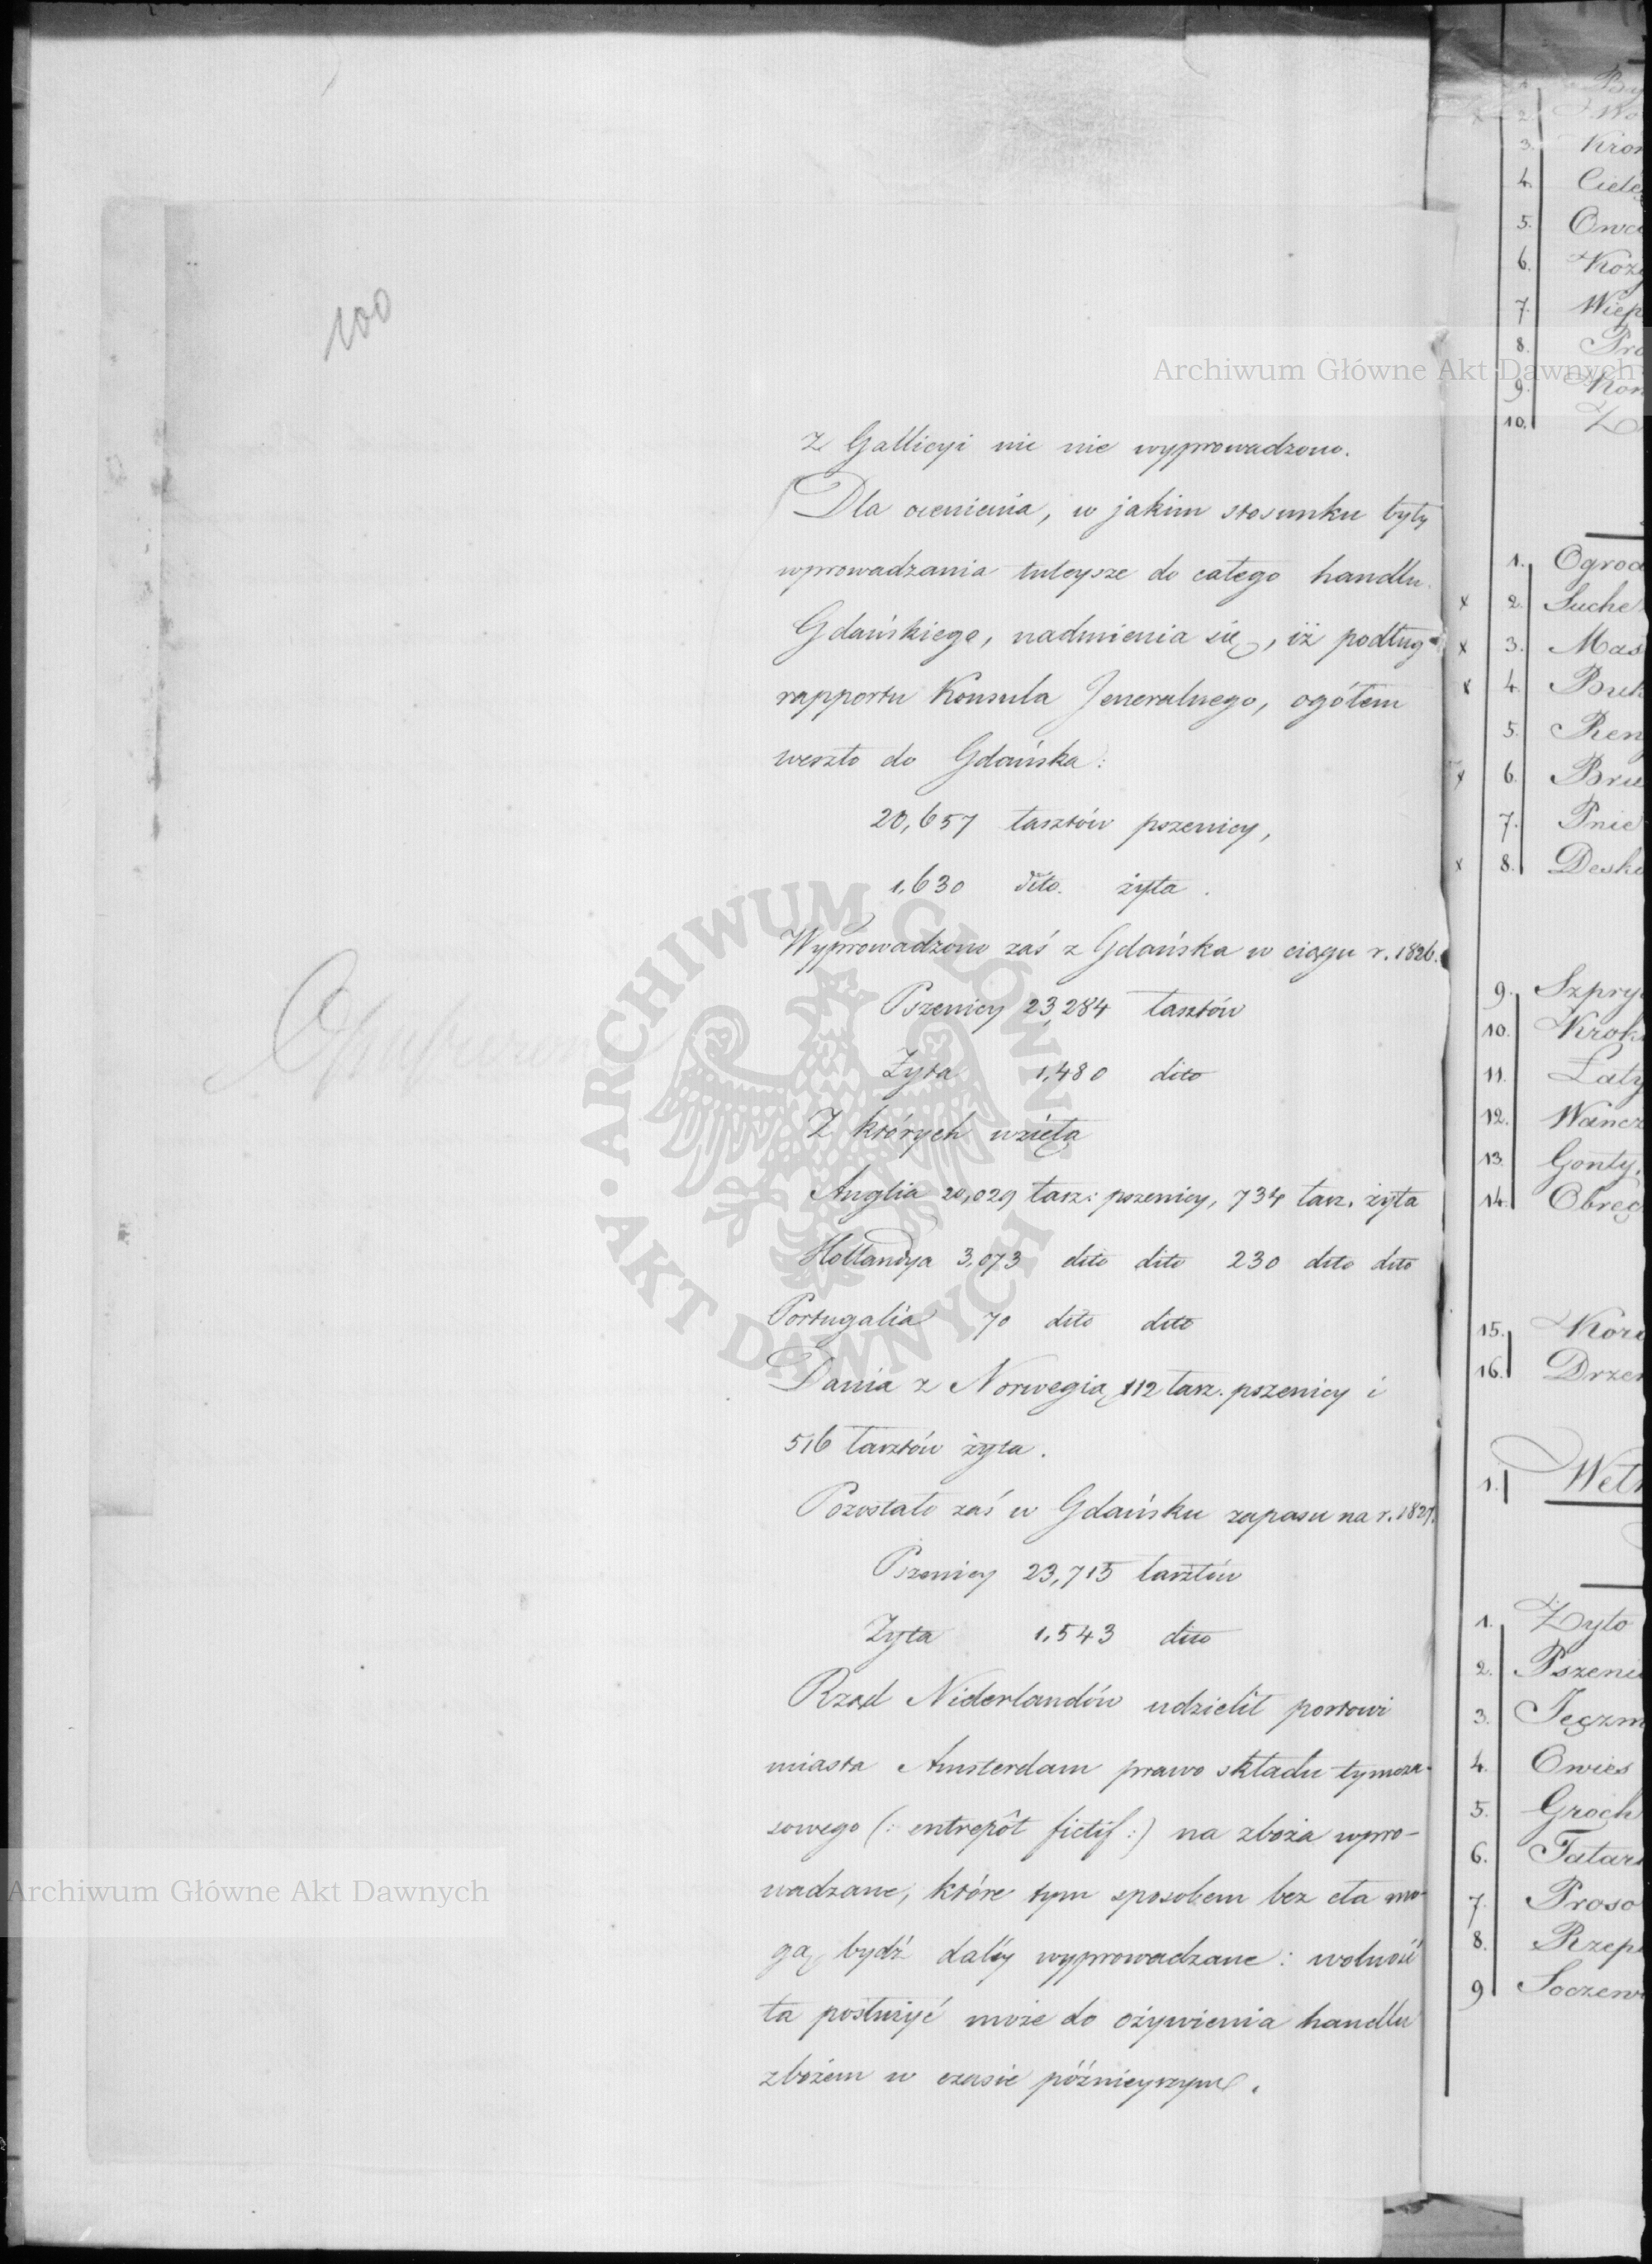 100
z Gallicyi nic nie wyprowadzono.
Dla ocenienia, w jakim stosunku były
wprowadzania tuteysze do całego handlu
Gdańskiego, nadmienia się, iż podług
rapportu Konsula Jeneralnego, ogółem
weszło do Gdańska:
20,657 łasztów pszenicy,
1,630 dito. żyta.
Wyprowadzono zaś z Gdańska w ciągu r. 1826.
Pszenicy 23,284 łasztów
Żyta 1,480 dito
Z których wzięła
Anglia 20,029 łasz: pszenicy, 734 łasz. żyta
Hollandya 3,073 dito dito 230 dito dito
Portugalia 70 dito dito
Dania z Norwegią 112 łasz. pszenicy i
516 łasztów żyta.
Pozostało zaś w Gdańsku zapasu na r. 1827.
Pszenicy 23,715 łasztów
Żyta 1,543 dito
Rząd Niderlandów udzielił portowi
miasta Amsterdam prawo składu tymcza-
sowego (: entrepôt fictif :) na zboża wpro-
wadzane, które tym sposobem bez cła mo-
gą bydź daléy wyprowadzane: wolność
ta posłużyć może do ożywienia handlu
zbożem w czasie późnieyszym.
2.
3. Kron
4. Cielę
5. Owce
6. Kozy
7. Wiep
8. Pro
9. Kon
10.
1. Ogrod
x 2. Suche
x 3. Mas
x 4. Buk
5. Ren
x 6. Bru
7. Pnie
x 8. Desk
9. Szpry
10. Krok
11. Łaty
12. Wancz
13. Gonty
14. Obręc
15. Kor
16. Drze
1. Weł
1. Żyto
2. Pszeni
3. Jęczm
4. Owies
5. Groch
6. Tatar
7. Proso
8. Rzep
9 Soczew
Archiwum Główne Akt Dawnych
ARCHIWUM GŁÓWNE · AKT DAWNYCH
Archiwum Główne Akt Dawnych